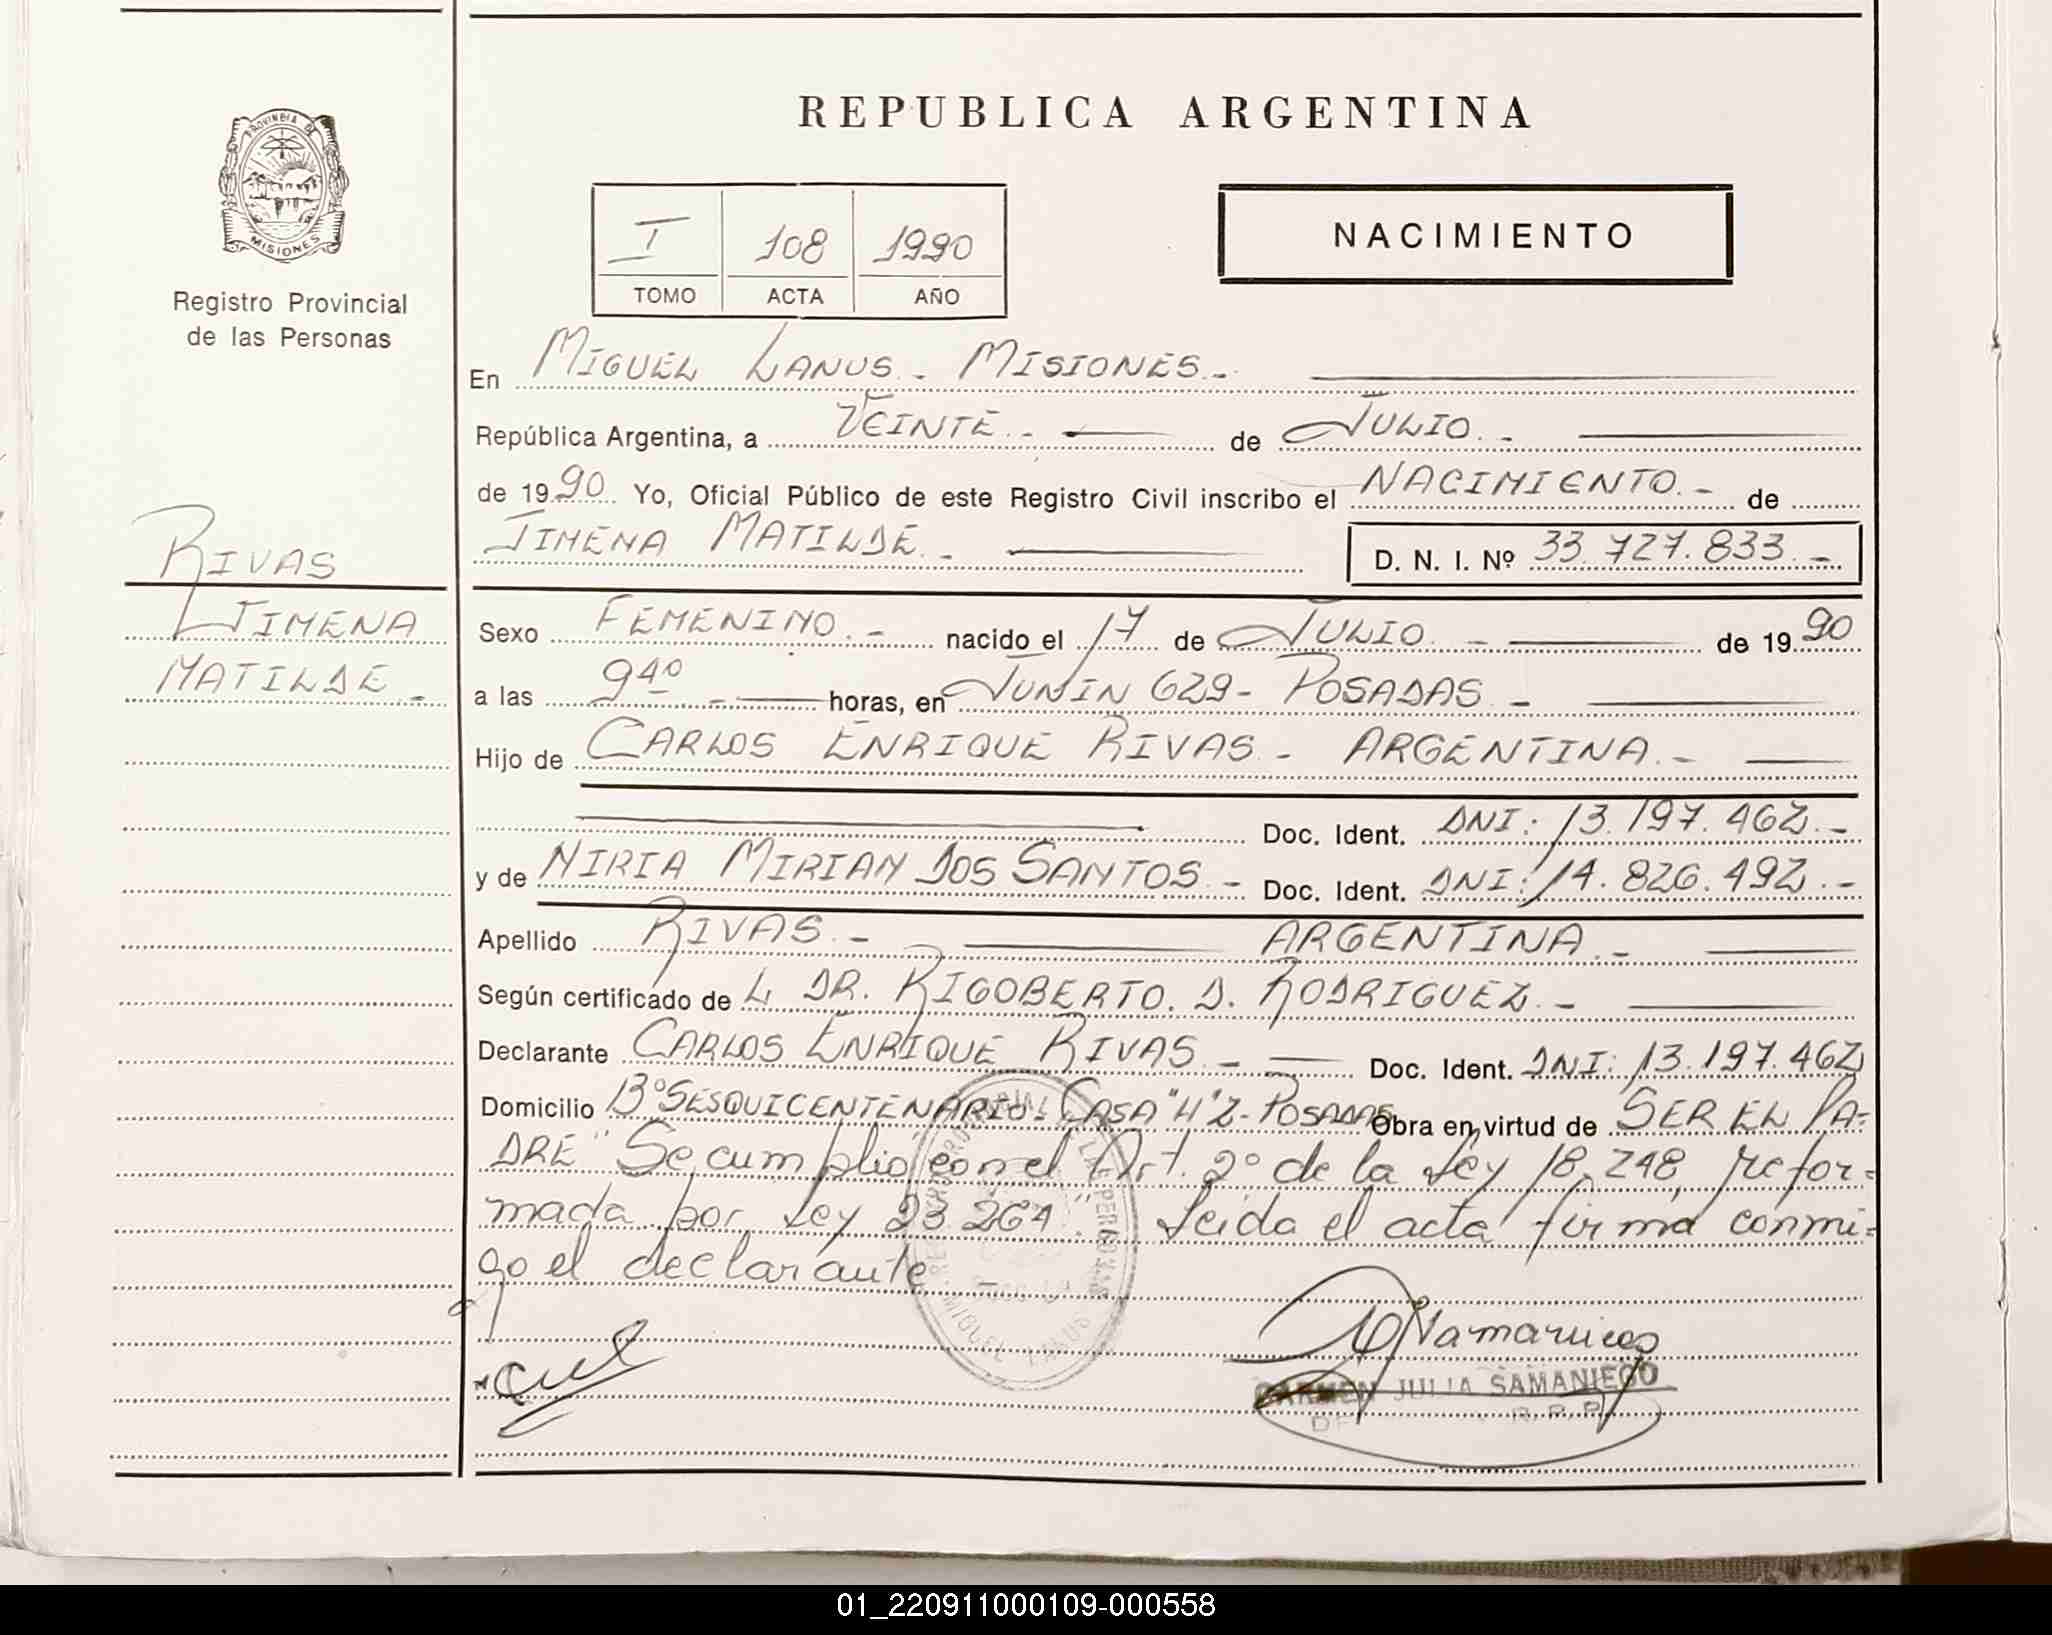 REPUBLICA ARGENTINA
PROVINCIA DE
MISIONES
Registro Provincial
de las Personas
I 108 1990
TOMO ACTA AÑO
NACIMIENTO
En MIGUEL LANUS.- MISIONES.-
República Argentina, a VEINTE.- de JULIO.-
de 1990 Yo, Oficial Público de este Registro Civil inscribo el NACIMIENTO.- de
JIMENA MATILDE.- D. N. I. Nº 33.727.833.-
RIVAS
JIMENA
MATILDE.-
Sexo FEMENINO.- nacido el 17 de JULIO.- de 1990
a las 940.- horas, en JUNIN 629- POSADAS.-
Hijo de CARLOS ENRIQUE RIVAS.- ARGENTINA.-
Doc. Ident. DNI: 13.197.462.-
y de NIRIA MIRIAN DOS SANTOS.- Doc. Ident. DNI: 14.826.492.-
Apellido RIVAS.- ARGENTINA.-
Según certificado de L DR. RIGOBERTO. D. RODRIGUEZ.-
Declarante CARLOS ENRIQUE RIVAS.- Doc. Ident. DNI: 13.197.462
Domicilio Bº SESQUICENTENARIO- CASA "4" 2- POSADAS Obra en virtud de SER EL PA=
DRE "Se cumplio con el Art. 2º de la Ley 18.248, refor=
mada por Ley 23.264". Leida el acta firma conmi=
go el declarante.-
MIGUEL LANUS
CARMEN JULIA SAMANIEGO
R.P.P.
01_220911000109-000558